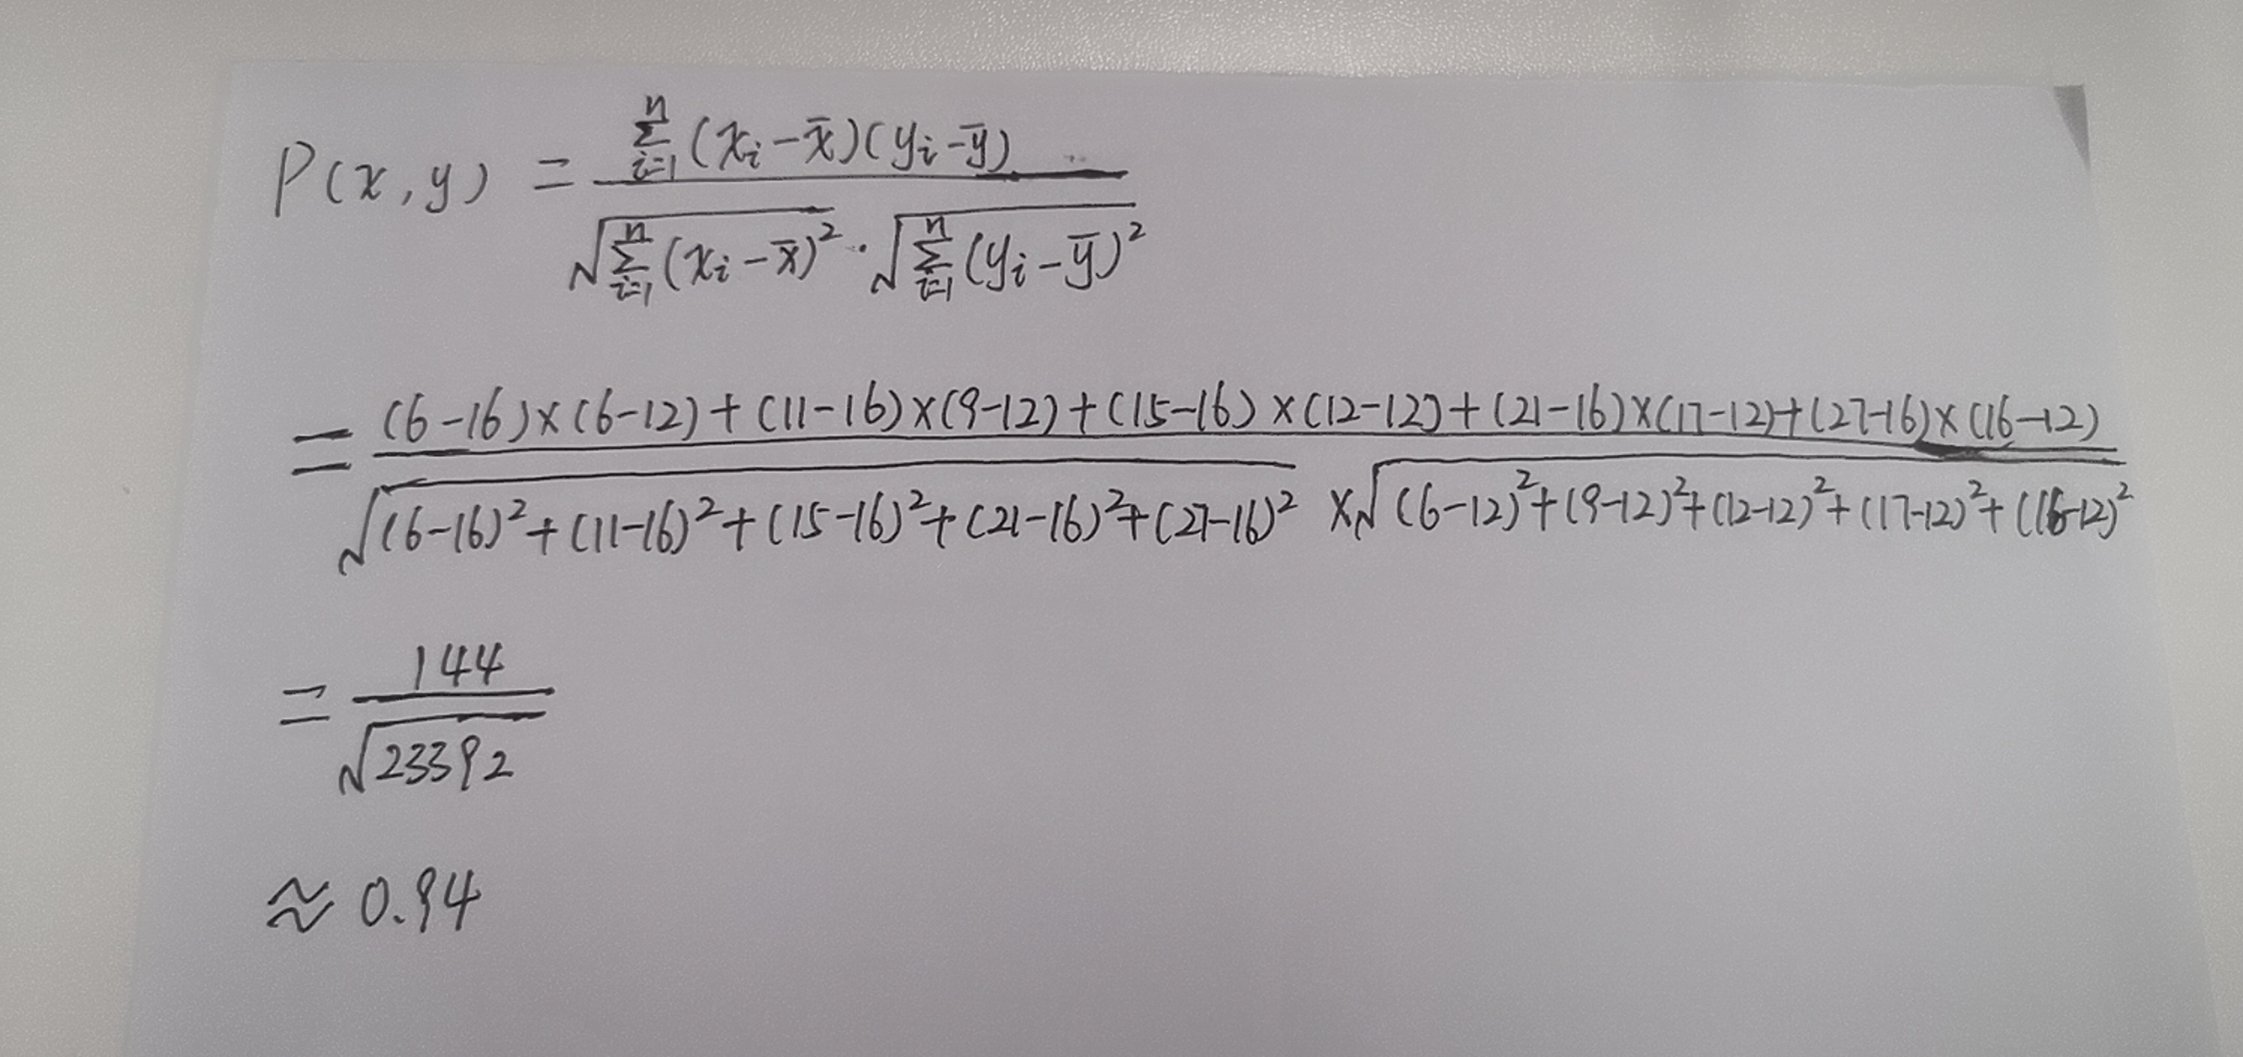 P(x,y) = \frac{\sum_{i=1}^{n}(x_i-\bar{x})(y_i-\bar{y})}{\sqrt{\sum_{i=1}^{n}(x_i-\bar{x})^2}\cdot\sqrt{\sum_{i=1}^{n}(y_i-\bar{y})^2}}
= \frac{(6-16)×(6-12)+(11-16)×(9-12)+(15-16)×(12-12)+(21-16)×(17-12)+(27-16)×(16-12)}{\sqrt{(6-16)^2+(11-16)^2+(15-16)^2+(21-16)^2+(27-16)^2}×\sqrt{(6-12)^2+(9-12)^2+(12-12)^2+(17-12)^2+(16-12)^2}}
= \frac{144}{\sqrt{23392}}
≈ 0.94